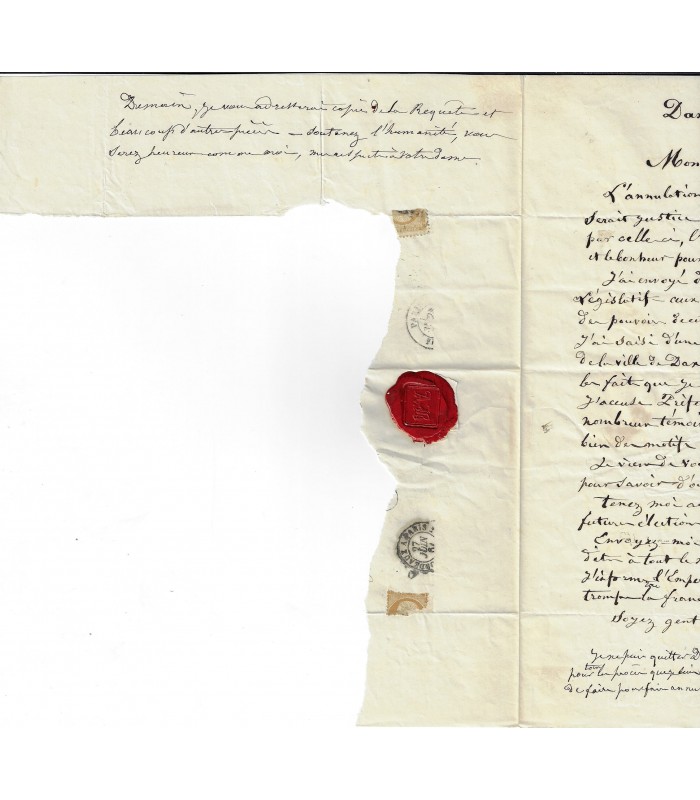 Demain, je vous adresserai copie de la Requête et
beaucoup d'autres pièces — soutenez l'humanité, vous
serez heureux comme moi, mes respects à votre dame.
Dax
Mon
L'annulation
serait justice
par celle-ci, l'
et le bonheur pour
J'ai envoyé d
Législatif — aux
des pouvoirs
J'ai saisi d'une
de la ville de Dax
les faits que je
J'accuse Préfe
nombreux témoi
bien des motifs
Je viens de vo
pour savoir d'o
tenez moi a
future élection
Envoyez-moi
à tout le
J'informe l'Emp
que
trompe la fran
Soyez gent
Je ne puis quitter D
tous
pour les procès
de faire pour faire annu
PARIS
BORDEAUX A PARIS
27